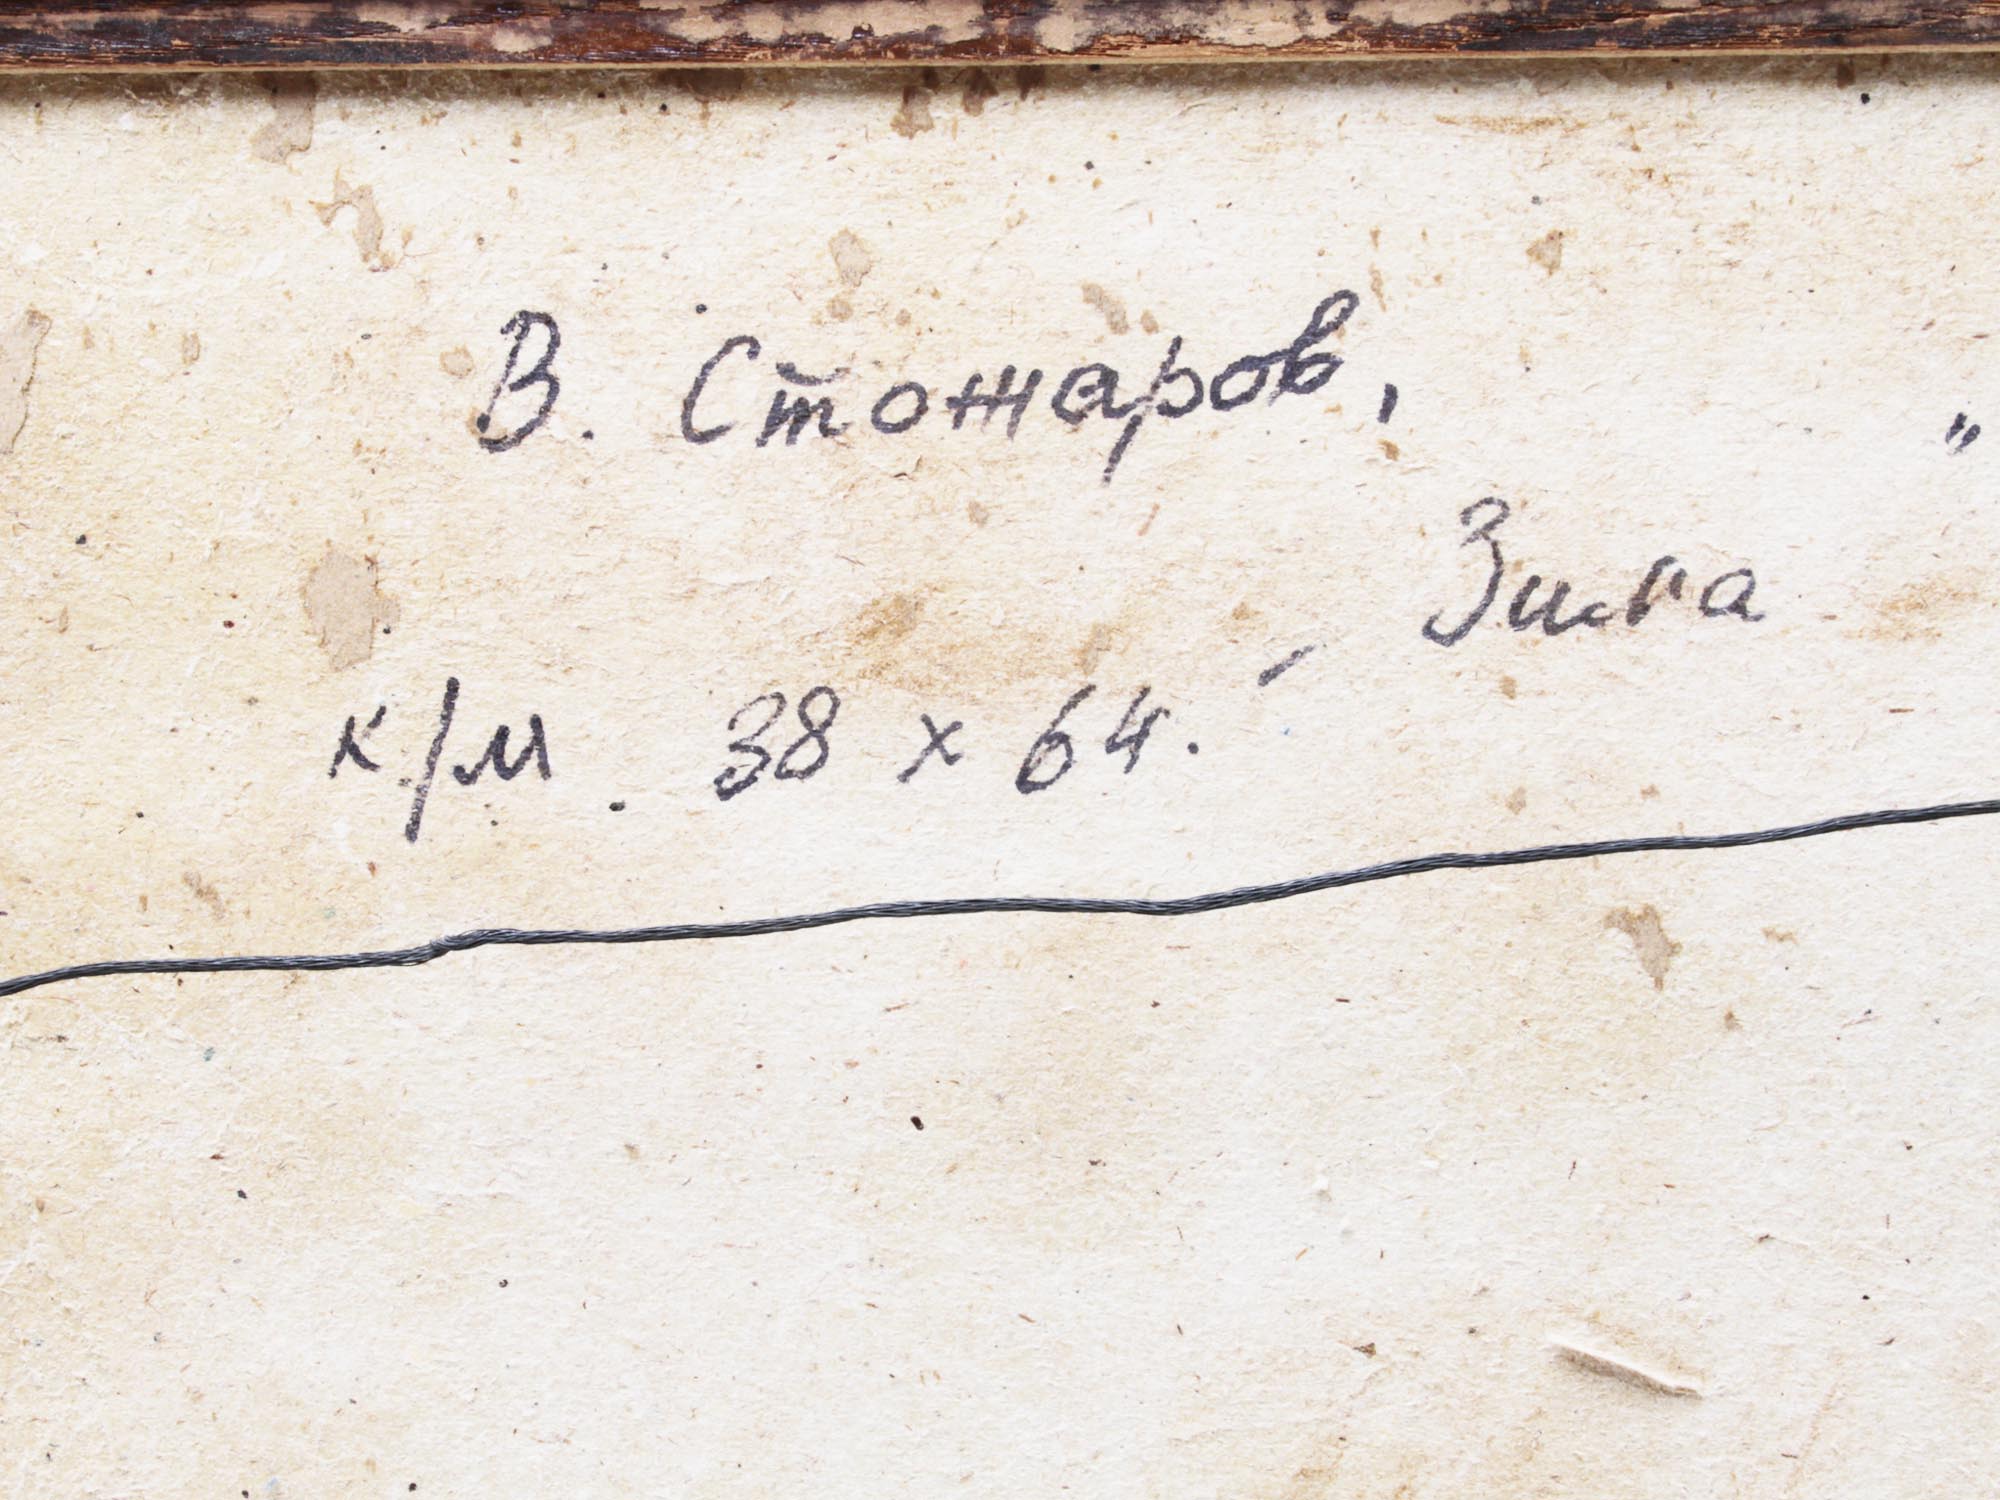 В. Стожаров, „
Зима
к/м. 38 x 64. –